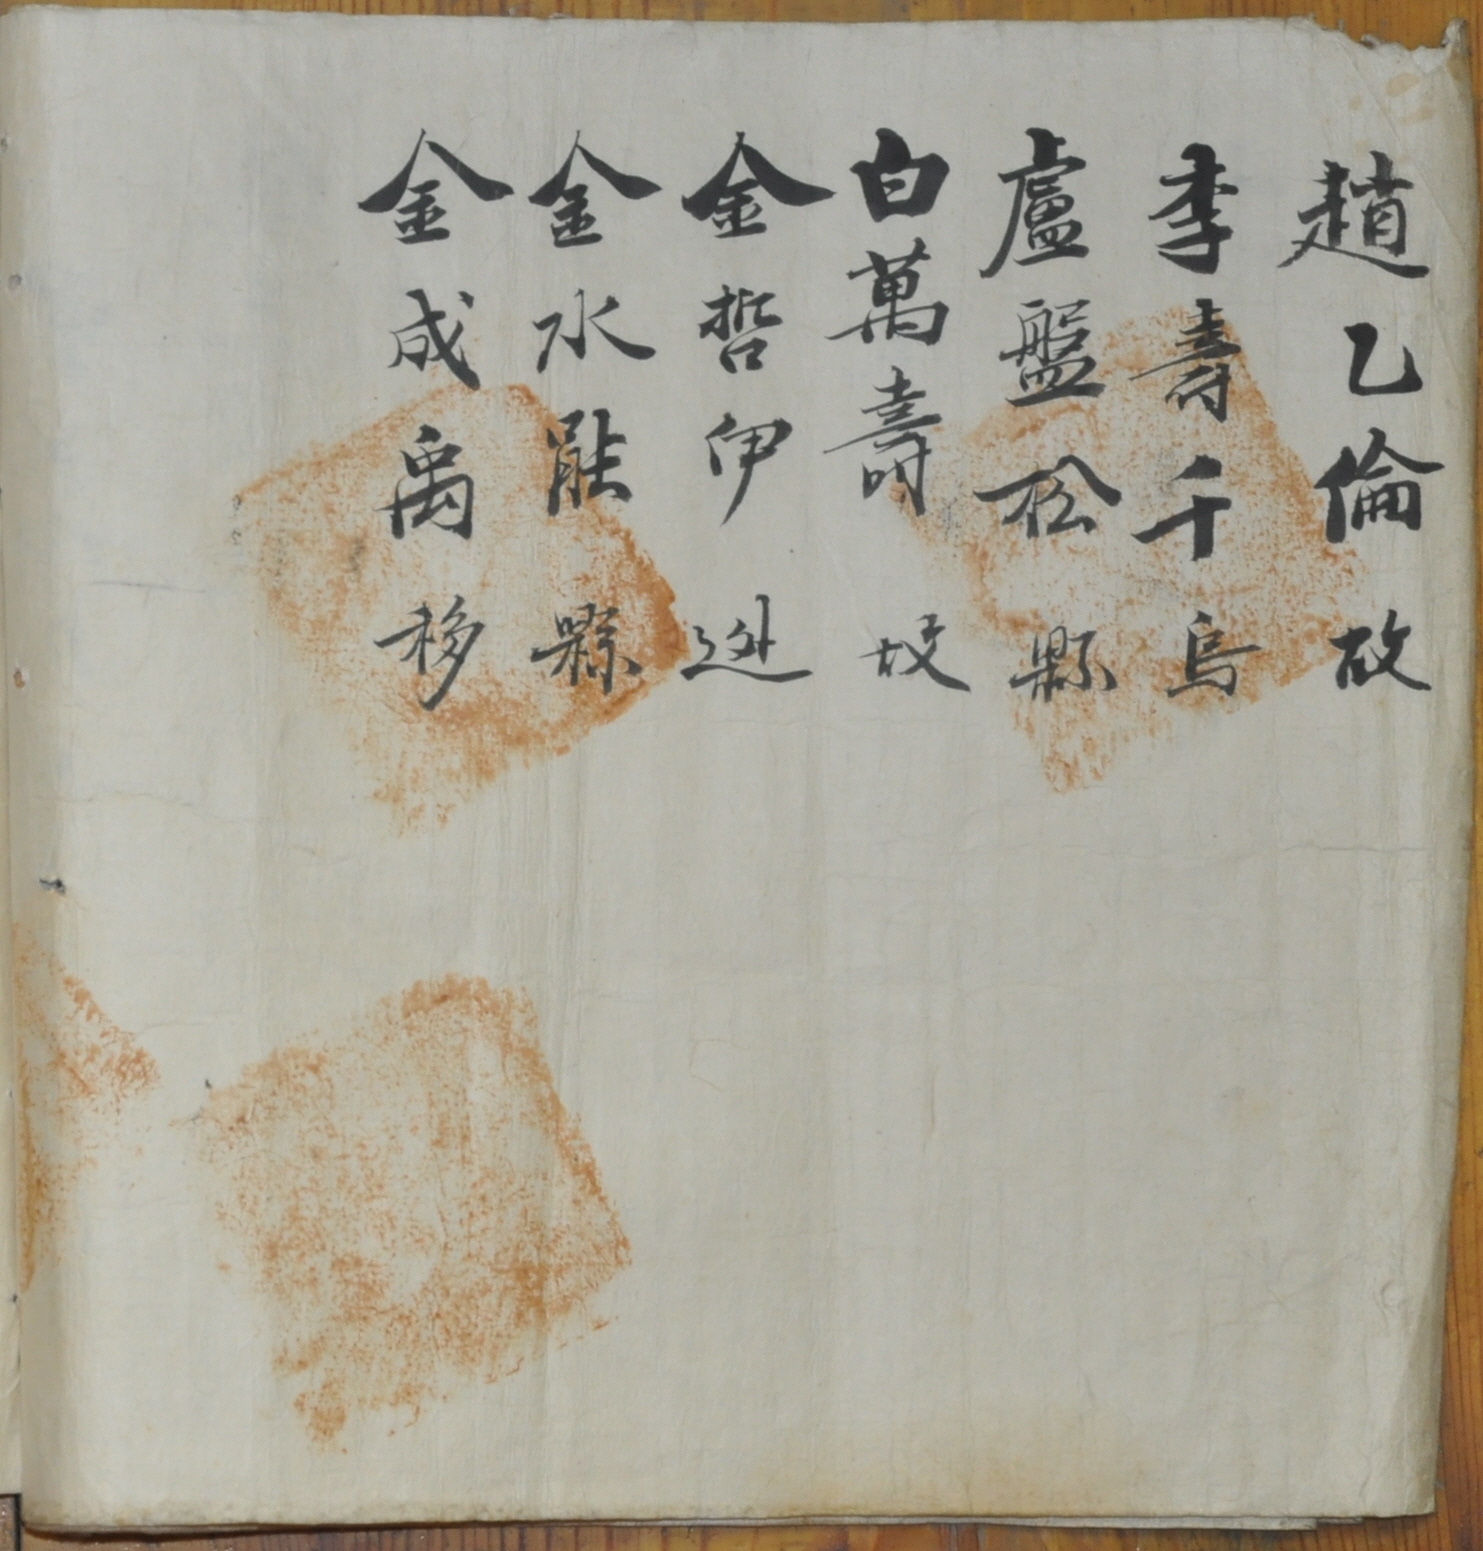 趙乙倫故
李壽千烏
盧盤松縣
白萬壽
金哲伊逊
金水能縣
金成禹移